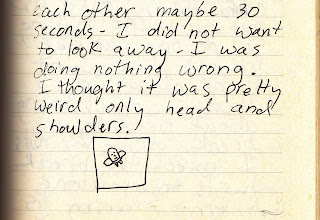 each other maybe 30
seconds - I did not want
to look away - I was
doing nothing wrong.
I thought it was pretty
weird only head and
shoulders.